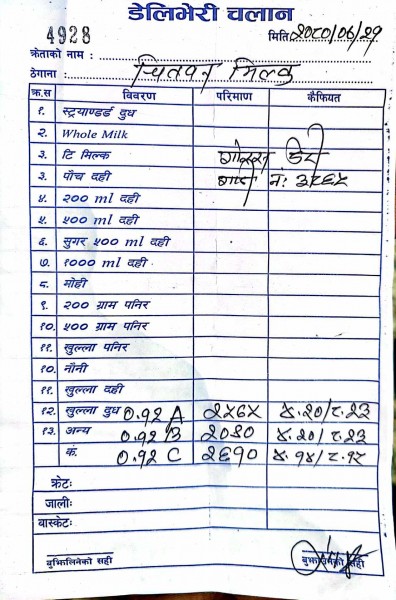 डेलिभेरी चलान
4928
मिति: २०८०/०६/२९
क्रेताको नाम :
ठेगाना : चितवन मिल्क
क्र.स विवरण परिमाण कैफियत
१. स्ट्रयाण्डर्ड दुध
२. Whole Milk
३. टि मिल्क डेरी
३. पौच दही नं:
४. २०० ml दही
५. ५०० ml दही
६. सुगर ५०० ml दही
७. १००० ml दही
८. मोही
९. २०० ग्राम पनिर
१०. ५०० ग्राम पनिर
११. खुल्ला पनिर
१०. नौनी
११. खुल्ला दही
१२. खुल्ला दुध 0.92 A ४.२०/८.२३
१३. अन्य 0.92 B ४.२०/८.२३
कं. 0.92 C २६९०
क्रेटः
जालीः
वास्केटः
बुझिलिनेको सही बुझाउनेको सही